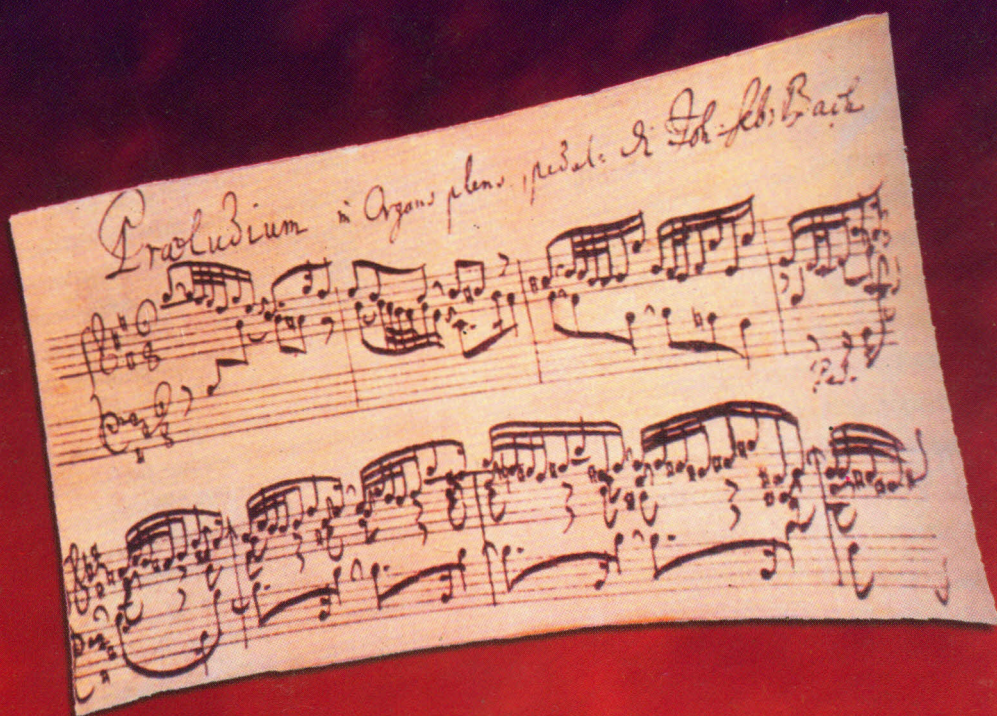 Præludium in Organo pleno, pedal: di Joh: Seb: Bach
Ped.